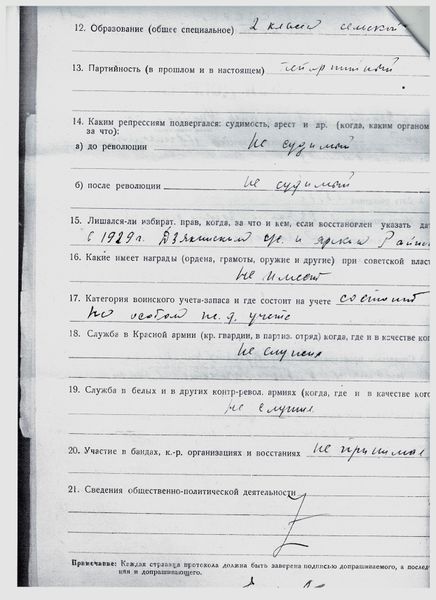 12. Образование (общее специальное) 2 класса сельской
13. Партийность (в прошлом и в настоящем) беспартийный
14. Каким репрессиям подвергался: судимость, арест и др. (когда, каким органом
за что):
а) до революции не судимый
б) после революции не судимый
15. Лишался-ли избират. прав, когда, за что и кем, если восстоноглен указать дат
с 1929 г. и
16. Какие имеет награды (ордена, грамоты, оружие и другие) при советской влас
Не имеет
17. Категория воинского учета-запаса и где состоит на учете состоит
на особом учете
18. Служба в Красной армии (кр. гвардии, в партиз. отряд) когда, где и в качестве ког
не служил
19. Служба в белых и в других контр-револ. армиях (когда, где и в качестве кого
не служил
20. Участие в бандах, к.-р. организациях и восстаниях не принимал
21. Сведения общественно-политической деятельности
Примечание: Каждая страница протокола должна быть заверена подписью допрашиваемого, а послед
няя и допрашивающего.